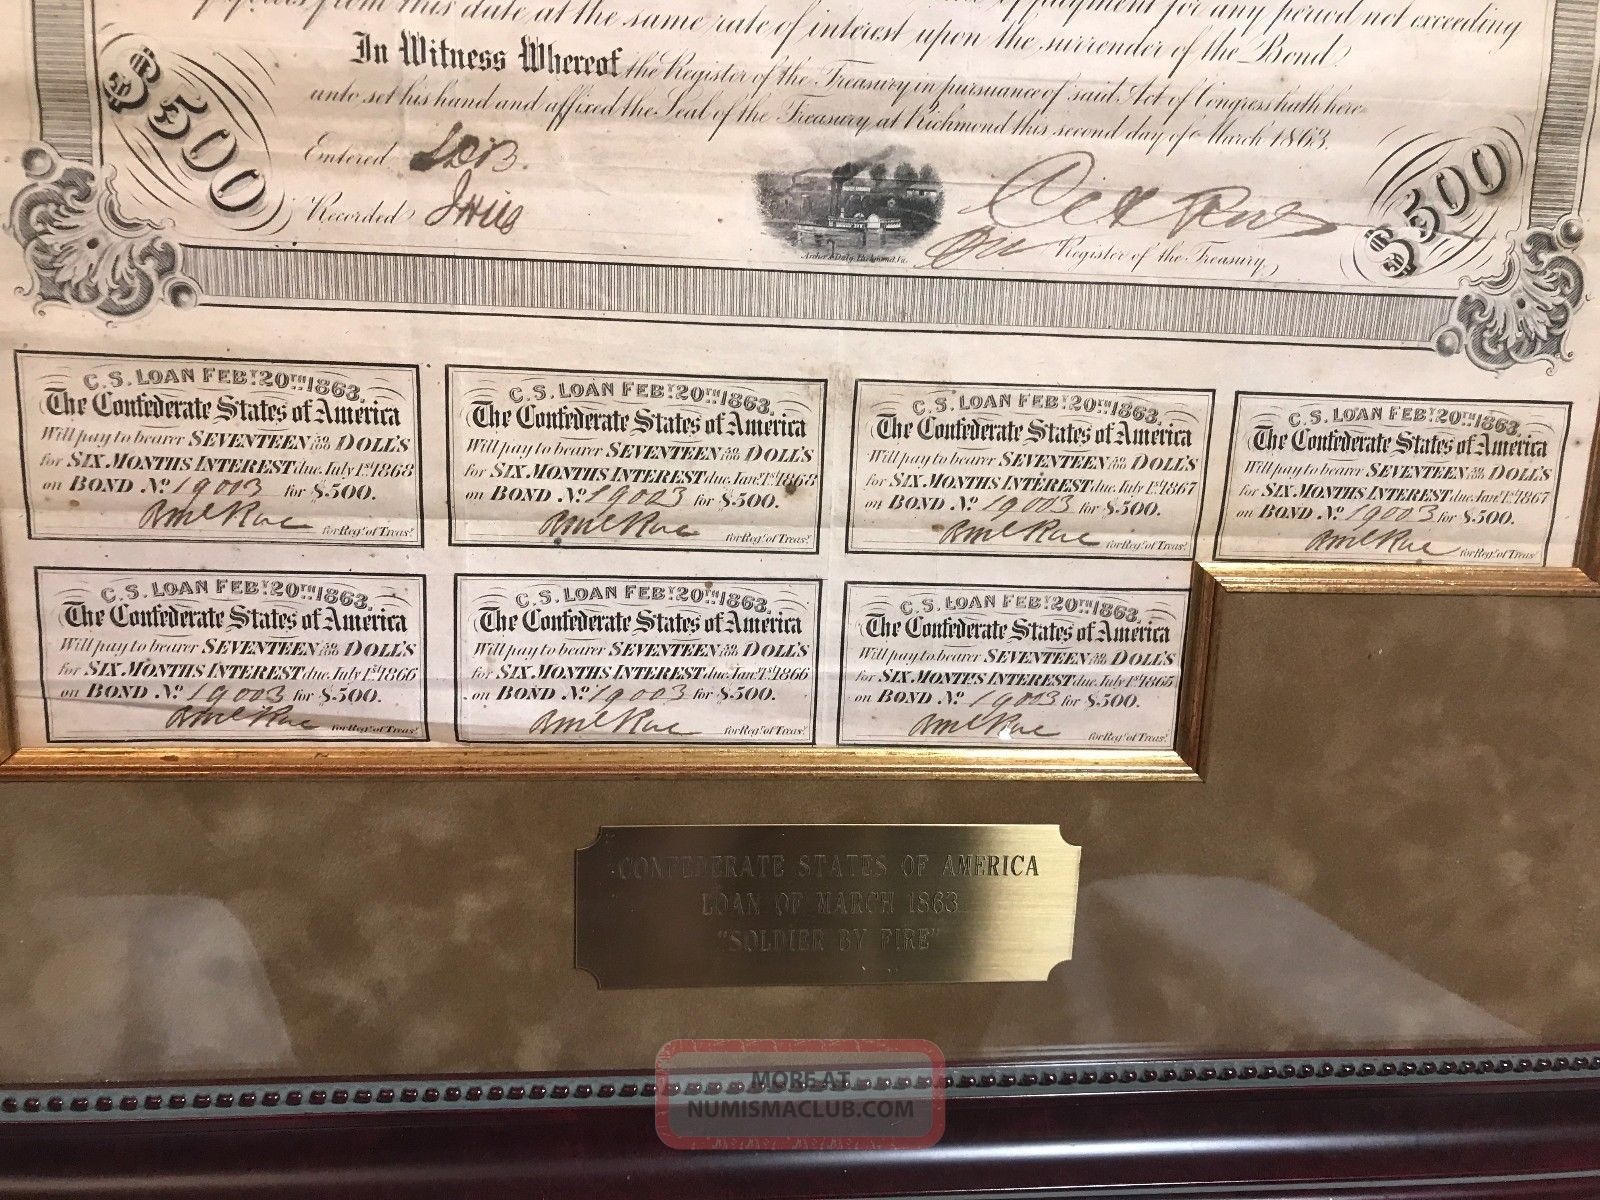 from this date at the same rate of interest upon the surrender of the Bond
payment for any period not exceeding
In Witness Whereof the Register of the Treasury in pursuance of said Act of Congress hath here=
unto set his hand and affixed the Seal of the Treasury at Richmond this second day of March 1863.
$500
Entered
Recorded
Register of the Treasury,
$500
C.S. LOAN FEBY. 20TH 1863.
The Confederate States of America
Will pay to bearer SEVENTEEN 50/100 DOLL'S
for SIX MONTHS INTEREST due July 1st 1868
on BOND No. 19003 for $.500.
for Regr. of Treasy.
C.S. LOAN FEBY. 20TH 1863.
The Confederate States of America
Will pay to bearer SEVENTEEN 50/100 DOLL'S
for SIX MONTHS INTEREST due Jany. 1st 1868
on BOND No. 19003 for $.500.
for Regr. of Treasy.
C.S. LOAN FEBY. 20TH 1863.
The Confederate States of America
Will pay to bearer SEVENTEEN 50/100 DOLL'S
for SIX MONTHS INTEREST due July 1st 1867
on BOND No. 19003 for $.500.
for Regr. of Treasy.
C.S. LOAN FEBY. 20TH 1863.
The Confederate States of America
Will pay to bearer SEVENTEEN 50/100 DOLL'S
for SIX MONTHS INTEREST due Jany. 1st 1867
on BOND No. 19003 for $.500.
for Regr. of Treasy.
C.S. LOAN FEBY. 20TH 1863.
The Confederate States of America
Will pay to bearer SEVENTEEN 50/100 DOLL'S
for SIX MONTHS INTEREST due July 1st 1866
on BOND No. 19003 for $.500.
for Regr. of Treasy.
C.S. LOAN FEBY. 20TH 1863.
The Confederate States of America
Will pay to bearer SEVENTEEN 50/100 DOLL'S
for SIX MONTHS INTEREST due Jany. 1st 1866
on BOND No. 19003 for $.500.
for Regr. of Treasy.
C.S. LOAN FEBY. 20TH 1863.
The Confederate States of America
Will pay to bearer SEVENTEEN 50/100 DOLL'S
for SIX MONTHS INTEREST due July 1st 1865
on BOND No. 19003 for $.500.
for Regr. of Treasy.
CONFEDERATE STATES OF AMERICA
LOAN OF MARCH 1863
"SOLDIER BY FIRE"
MORE AT
NUMISMACLUB.COM